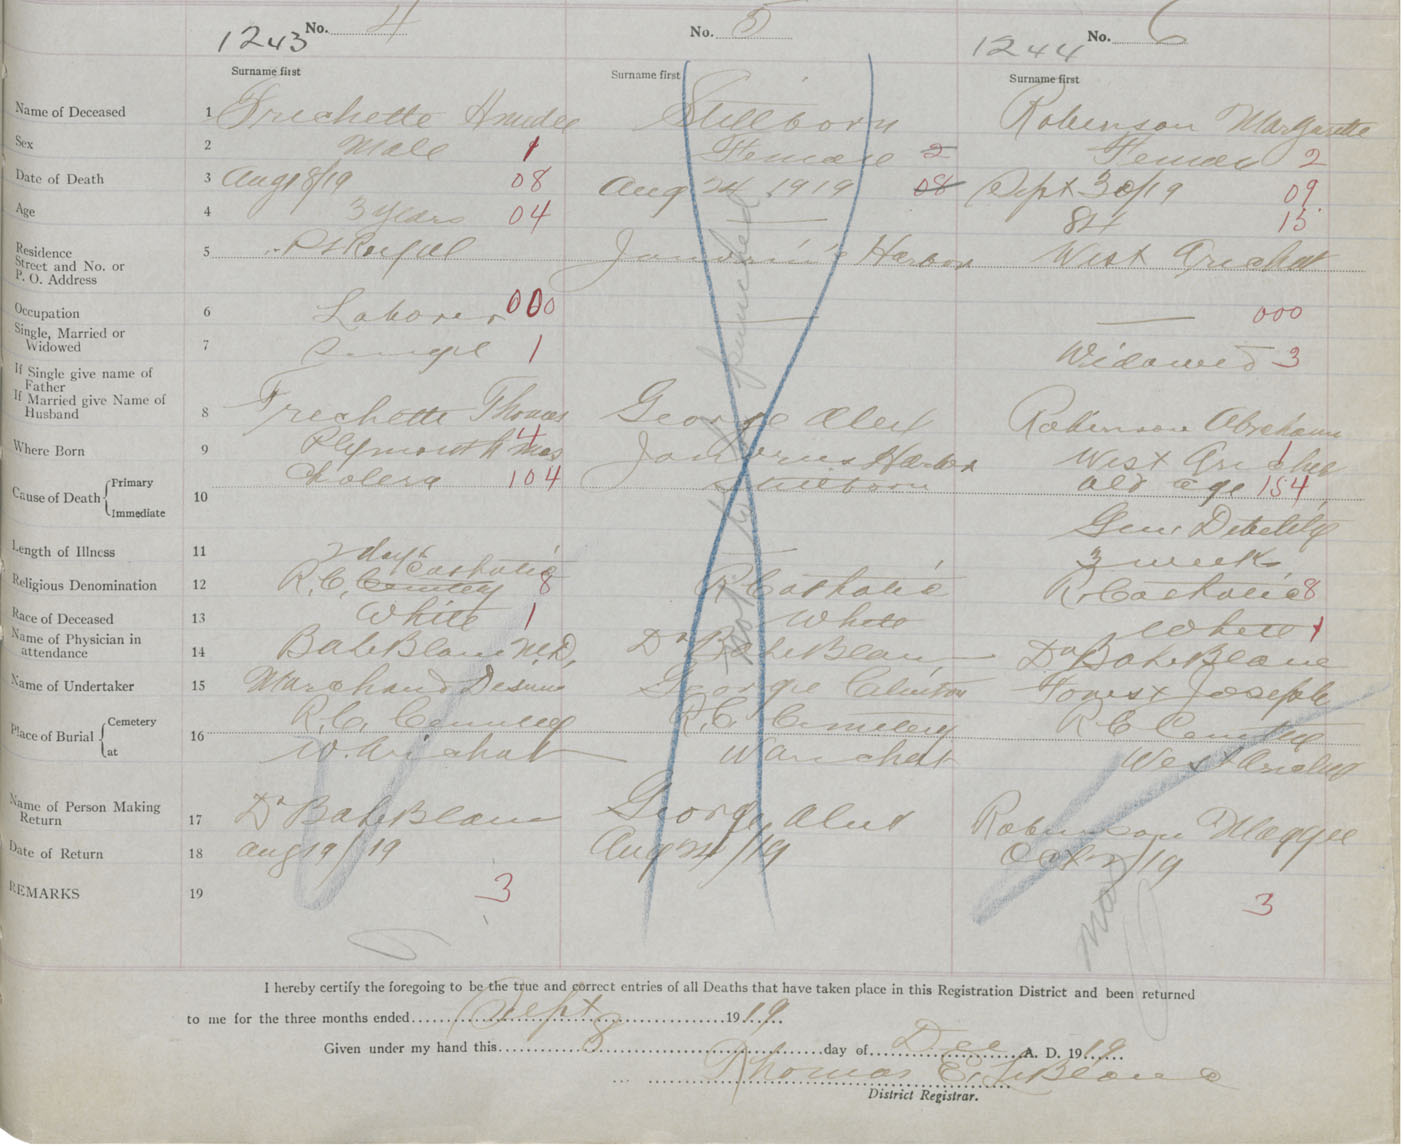 No. 4 No. 5 No. 6
1243 1244
Surname first Surname first Surname first
Name of Deceased 1 Frichette Stillborn Robinson Margarette
Sex 2 Male 1 Female 2 Female 2
Date of Death 3 Aug 18/19 08 Aug 24 1919 08 Sept 30/19 09
Age 4 3 years 04 — 84 15
Residence
Street and No. or
P. O. Address
5 Harbor West Arichat
Occupation 6 Laborer 000 — — 000
Single, Married or
Widowed
7 Single 1 Widowed 3
If Single give name of
Father
If Married give Name of
Husband
8 Frichette Thomas George Robinson Abraham
Where Born 9 Plymouth Mass 4 West Arichat 1
Cause of Death { Primary
Immediate
10 Cholera 104 Stillborn Old age 154
Gen. Debility
Length of Illness 11 2 days — 3 weeks
Religious Denomination 12 R.C. Cemetery Catholic 8 R Catholic R. Catholic 8
Race of Deceased 13 White 1 White White 1
Name of Physician in
attendance
14 M.D. Dr Dr
Name of Undertaker 15 Marchand George Joseph
Place of Burial { Cemetery
at
16 R.C. Cemetery R.C. Cemetery R C Cemetery
W. Arichat W Arichat West Arichat
Name of Person Making
Return
17 Dr George Robinson Maggie
Date of Return 18 Aug 19/19 Aug 24/19 Oct 2/19
REMARKS 19 3 3
Not to be punched
I hereby certify the foregoing to be the true and correct entries of all Deaths that have taken place in this Registration District and been returned
to me for the three months ended Sept 1919
Given under my hand this 8 day of Dec A. D. 1919
Thomas E. LeBlanc
District Registrar.